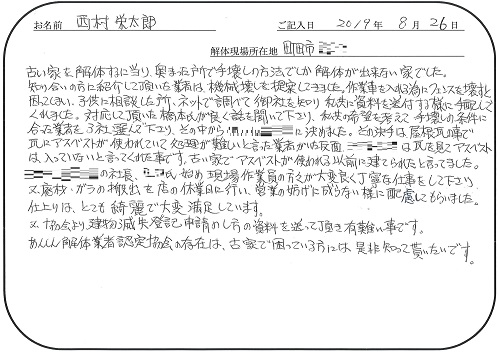 お名前 西村栄太郎 ご記入日 2019年 8月 26日
解体現場所在地 町田市
古い家を解体するに当り、奥まった所で手壊しの方法でしか解体が出来ない家でした。
知り合いの方に紹介して頂いた業者は、機械壊しを提案してきました。作業車を入れる為にフェンスを壊すと
困ってしまい、子供に相談した所、ネットで調べて御社を知り私共に資料を送付する様に手配して
くれました。対応して頂いた橋本氏が良く話を聞いて下り、私共の希望を考えて手壊しの条件に
合った業者を3社選んで下り、その中から に決めました。その決手は屋根瓦の事で
瓦にアスベストが使われていて処理が難しいと言った業者がいた反面 は瓦を見てアスベスト
は入っていないと言ってくれた事です。古い家でアスベストが使われる以前に建てられたと言ってました。
の社長、 氏始め現場作業員の方々が大変良く丁寧な仕事をして下り
又、廃材・ガラの搬出を店の休業日に行い、営業の妨げに成らない様に配慮してもらいました。
仕上りは、とても綺麗で大変満足しています。
又、協会より建物滅失登記申請のし方の資料を送って頂き有難い事です。
あんしん解体業者認定協会の存在は、古家で困っている方には是非知って貰いたいです。